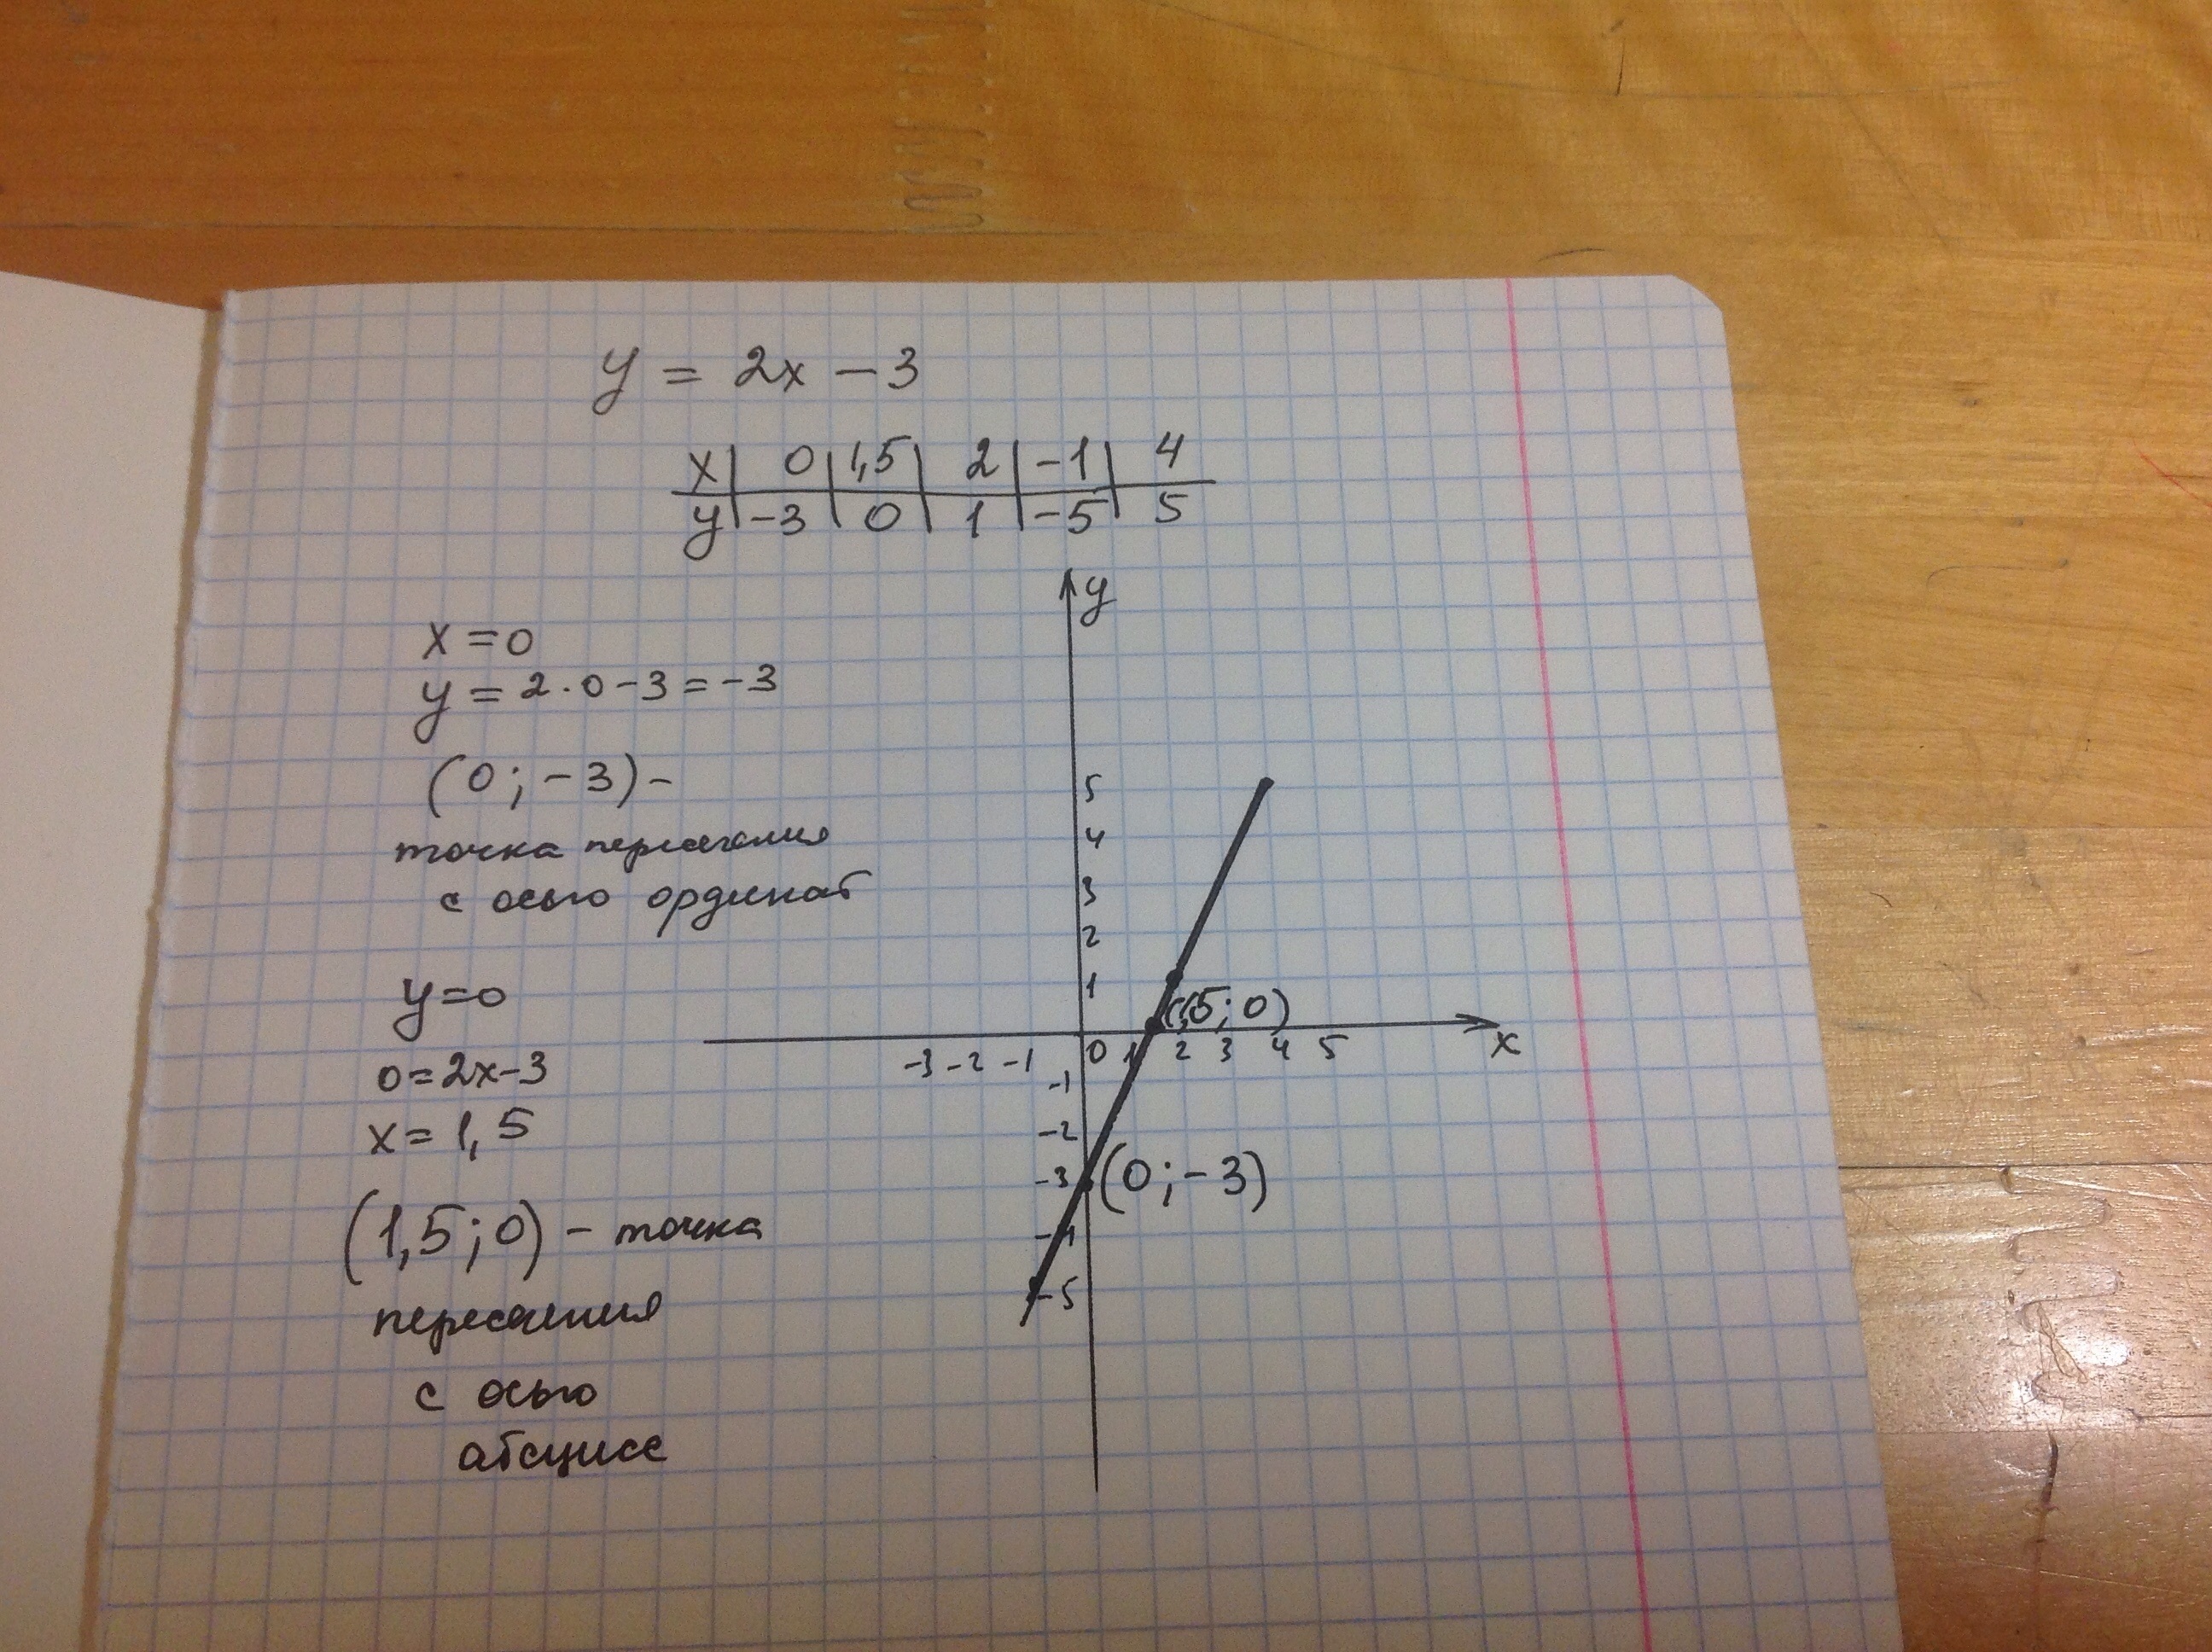 y = 2x - 3
x | 0 | 1,5 | 2 | -1 | 4
y | -3 | 0 | 1 | -5 | 5
x = 0
y = 2 · 0 - 3 = -3
(0 ; -3) -
точка пересечения
с осью ординат
y = 0
0 = 2x - 3
x = 1,5
(1,5 ; 0) - точка
пересечения
с осью
абсцисс
y
5
4
3
2
1
(1,5 ; 0)
-3 -2 -1 0 1 2 3 4 5 x
-1
-2
-3 (0 ; -3)
-4
-5